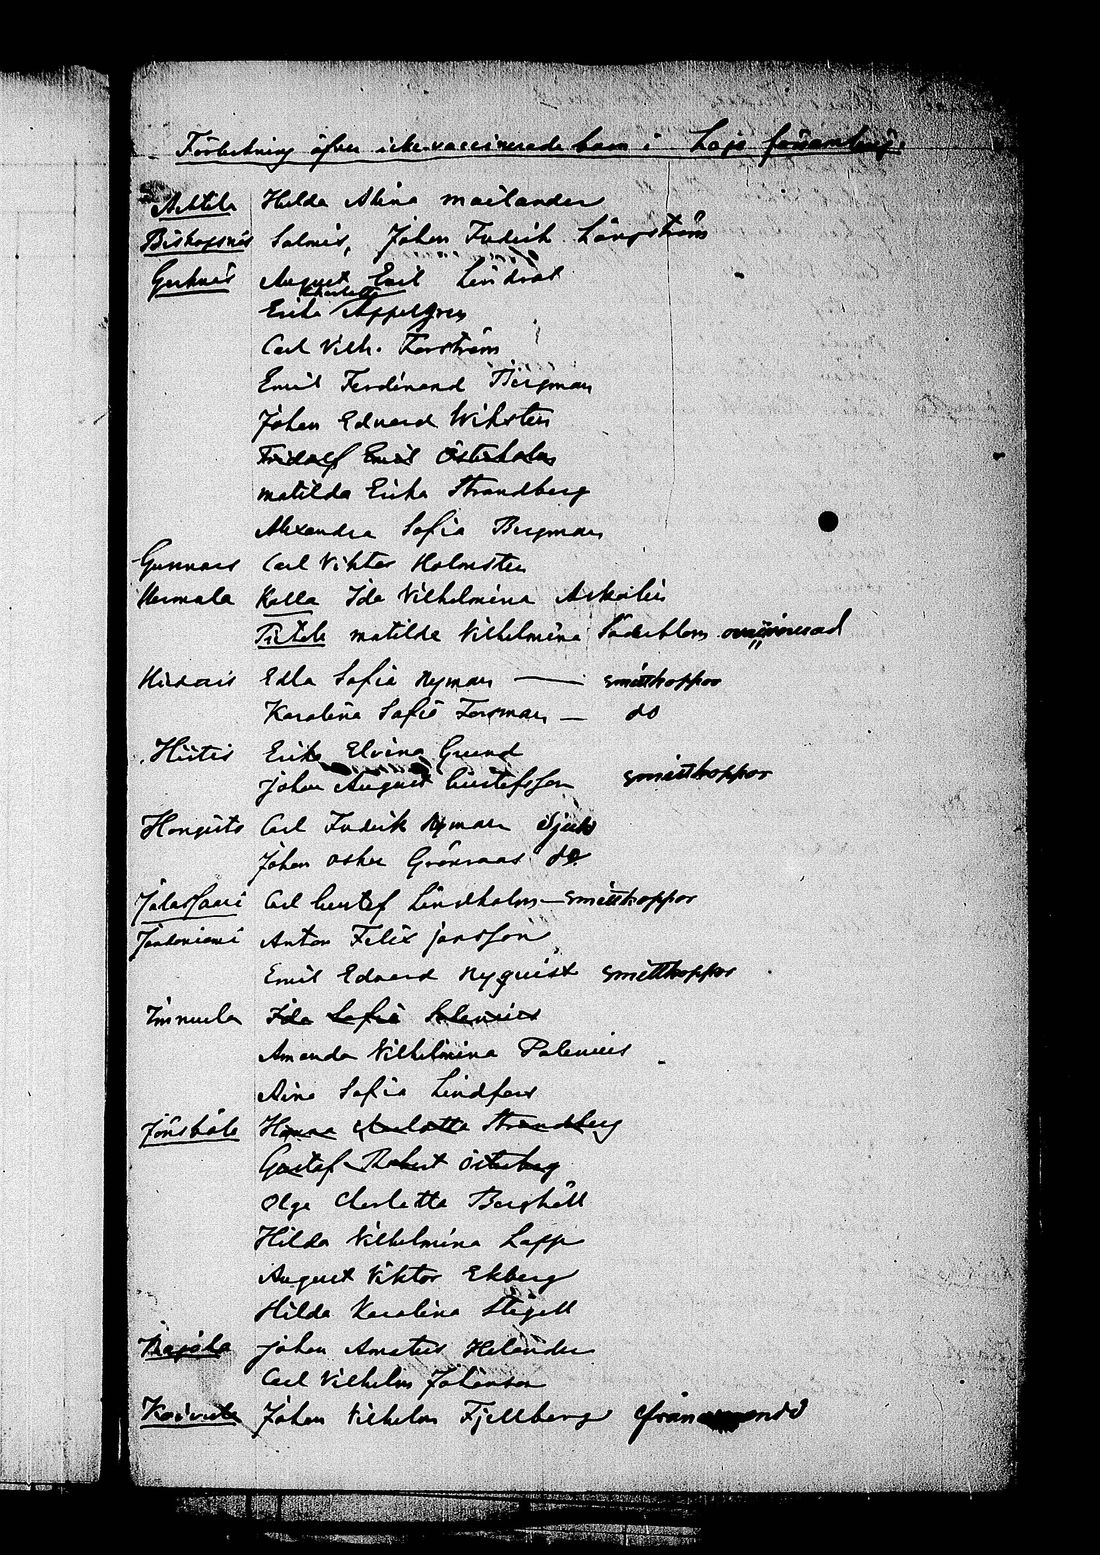 Förteckning öfver icke vaccinerade barn i Lojo församling.
Hilda Alina Mailander
Biskopsnäs Salmis, Johan Fredrik Långström
Gerknäs August Emil Lindros
Charlotta
Erika Appelgren
Carl Vilh. Forström
Emil Ferdinand Bergman
Johan Edvard Wiksten
Fridolf Emil Österholm
Matilda Erika Strandberg
Alexandra Sofia Bergman
Gunnars Carl Viktor Holmsten
Hermala Kalla Ida Vilhelmina Askolin
Matilda Vilhelmina Söderblom
Edla Sofia Nyman — smittkoppor
Karolina Sofia Forsman — do
Hiitis Erika Elvina Grund
Johan August Gustafsson smittkoppor
Hongisto Carl Fredrik Nyman sjuk
Johan Oskar Grönroos do
Jalassaari Carl Gustaf Lindholm — smittkoppor
Jantoniemi Anton Felix Jansson
Emil Edvard Nyqvist smittkoppor
Immula Ida Sofia Salenius
Amanda Vilhelmina Palenius
Aina Sofia Lindfors
Jönsböle Hanna Charlotta Strandberg
Gustaf Robert Österberg
Olga Charlotta Berghäll
Hilda Vilhelmina Lapp
August Viktor Ekberg
Hilda Karolina Stigell
Johan Amatus Helander
Carl Vilhelm Johansson
Koivula Johan Vilhelm Fjellberg